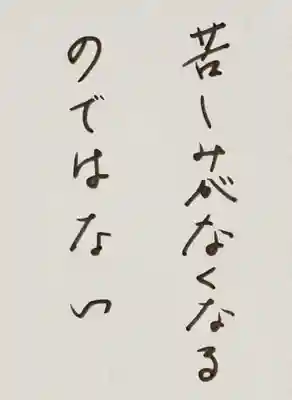 苦しみがなくなる
のではない